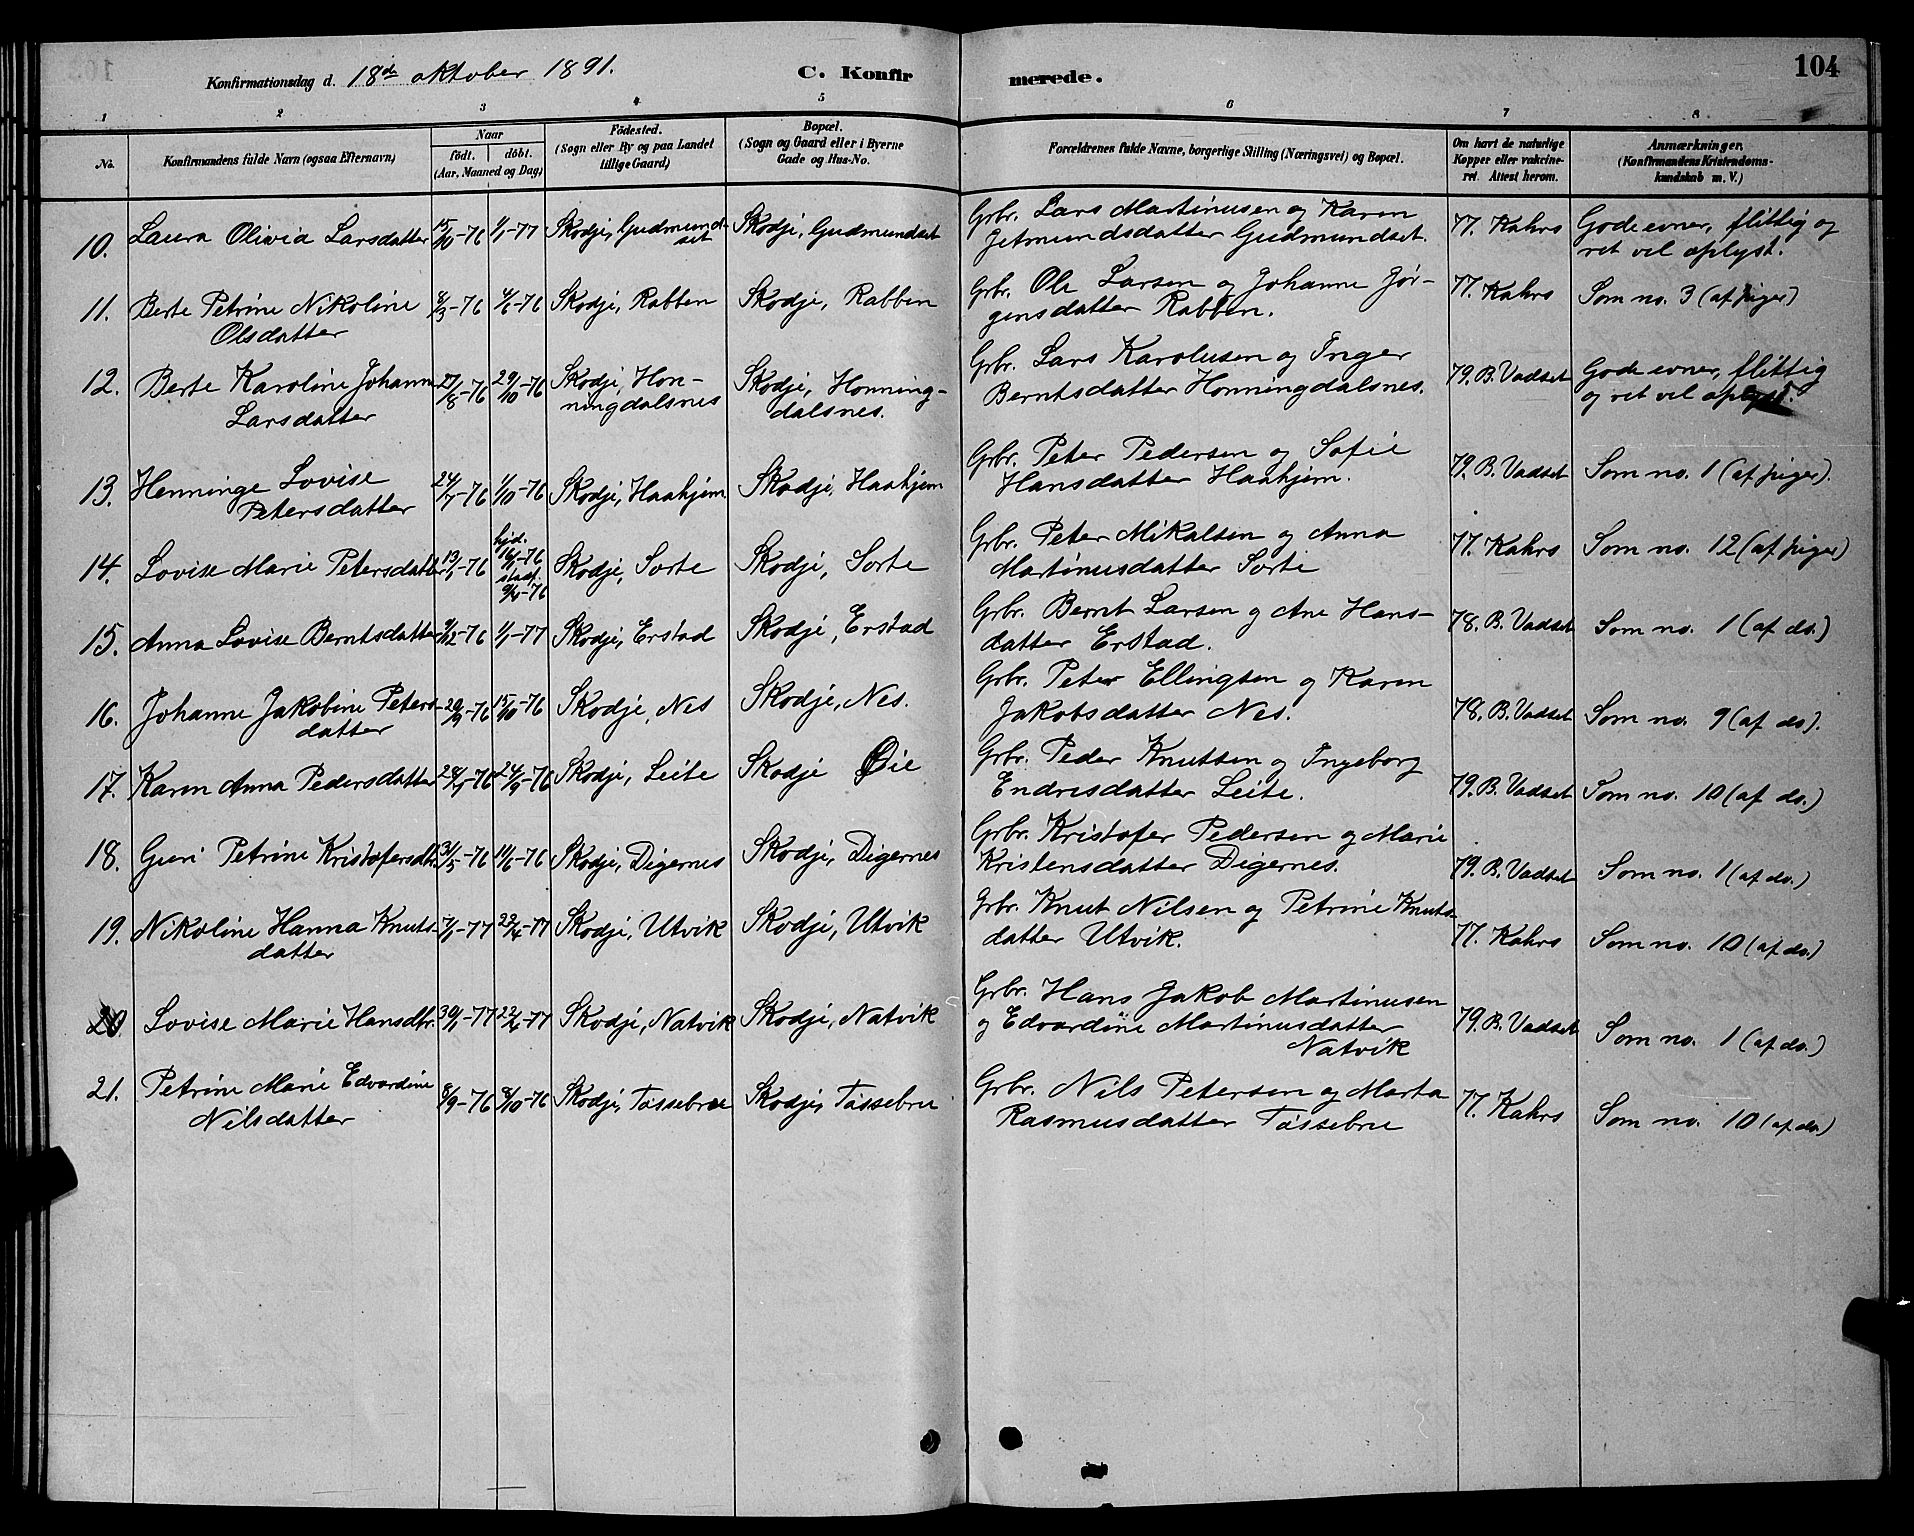 Konfirmationsdag d. 18de oktober 1891. C. Konfirmerede. 104
1 2 3 4 5 6 7 8
No. Konfirmandens fulde Navn (ogsaa Efternavn) Naar födt. döbt. (Aar, Maaned og Dag) Födested. (Sogn eller By og paa Landet tillige Gaard) Bopæl. (Sogn og Gaard eller i Byerne Gade og Hus-No. Forældrenes fulde Navne, borgerlige Stilling (Næringsvei) og Bopæl. Om havt de naturlige Kopper eller vakcineret. Attest herom. Anmærkninger. (Konfirmandens Kristendomskundskab m. V.)
10. Laura Olivia Larsdatter 15/10-76 1/1-77 Skodje, Gudmundset Skodje, Gudmundset Grbr. Lars Martinusen og Karen
Jetmundsdatter Gudmundset. 77. Kahrs Gode evner, flittig og
ret vel oplyst.
11. Berte Petrine Nikoline
Olsdatter /3-76 4/6-76 Skodje, Rabben Skodje, Rabben Grbr. Ole Larsen og Johanne Jør-
gensdatter Rabben. 77. Kahrs Som no. 3 (af piger)
12. Berte Karoline Johanne
Larsdatter 27/8-76 29/10-76 Skodje, Hon-
ningdalsnes Skodje, Honning-
dalsnes. Grbr. Lars Karolusen og Inger
Berntsdatter Honningdalsnes. 79. B. Vadset Gode evner, flittig
og ret vel oplyst.
13. Henninge Lovise
Petersdatter 24/7-76 1/10-76 Skodje, Haahjem Skodje, Haahjem Grbr. Peter Pedersen og Sofie
Hansdatter Haahjem. 79. B. Vadset Som no. 1 (af piger).
14. Lovise Marie Petersdatter 13/1-76 hjd. 16/1-76 stadf. 9/4-76 Skodje, Sorte Skodje, Sorte Grbr. Peter Mikalsen og Anna
Martinusdatter Sorte 77. Kahrs Som no. 12 (af piger)
15. Anna Lovise Berntsdatter /12-76 1/1-77 Skodje, Erstad Skodje, Erstad Grbr. Bernt Larsen og Ane Hans-
datter Erstad. 78. B. Vadset Som no. 1 (af do.)
16. Johanne Jakobine Peters-
datter 20/9-76 15/10-76 Skodje, Nes Skodje, Nes. Grbr. Peter Ellingsen og Karen
Jakobsdatter Nes. 78. B. Vadset Som no. 9 (af do).
17. Karen Anna Pedersdatter 28/7-76 24/9-76 Skodje, Leite Skodje Øie Grbr. Peder Knutsen og Ingeborg
Endresdatter Leite. 79. B. Vadset Som no. 10 (af do.)
18. Guri Petrine Kristofersdtr. 31/5-76 11/6-76 Skodje, Digernes Skodje, Digernes Grbr. Kristofer Pedersen og Marie
Kristensdatter Digernes. 79. B. Vadset Som no. 1 (af do.)
19. Nikoline Hanna Knuts-
datter 7/1-77 22/4-77 Skodje, Utvik Skodje, Utvik Grbr. Knut Nilsen og Petrine Knuts-
datter Utvik. 77. Kahrs Som no. 10 (af do.)
20. Lovise Marie Hansdtr. 30/1-77 22/4-77 Skodje, Natvik Skodje, Natvik Grbr. Hans Jakob Martinusen
og Edvardine Martinusdatter
Natvik 79. B. Vadset Som no. 1 (af do.)
21. Petrine Marie Edvardine
Nilsdatter 8/9-76 8/10-76 Skodje, Tøssebro Skodje, Tøssebro Grbr. Nils Petersen og Marta
Rasmusdatter Tøssebro 77. Kahrs Som no. 10 (af do.)